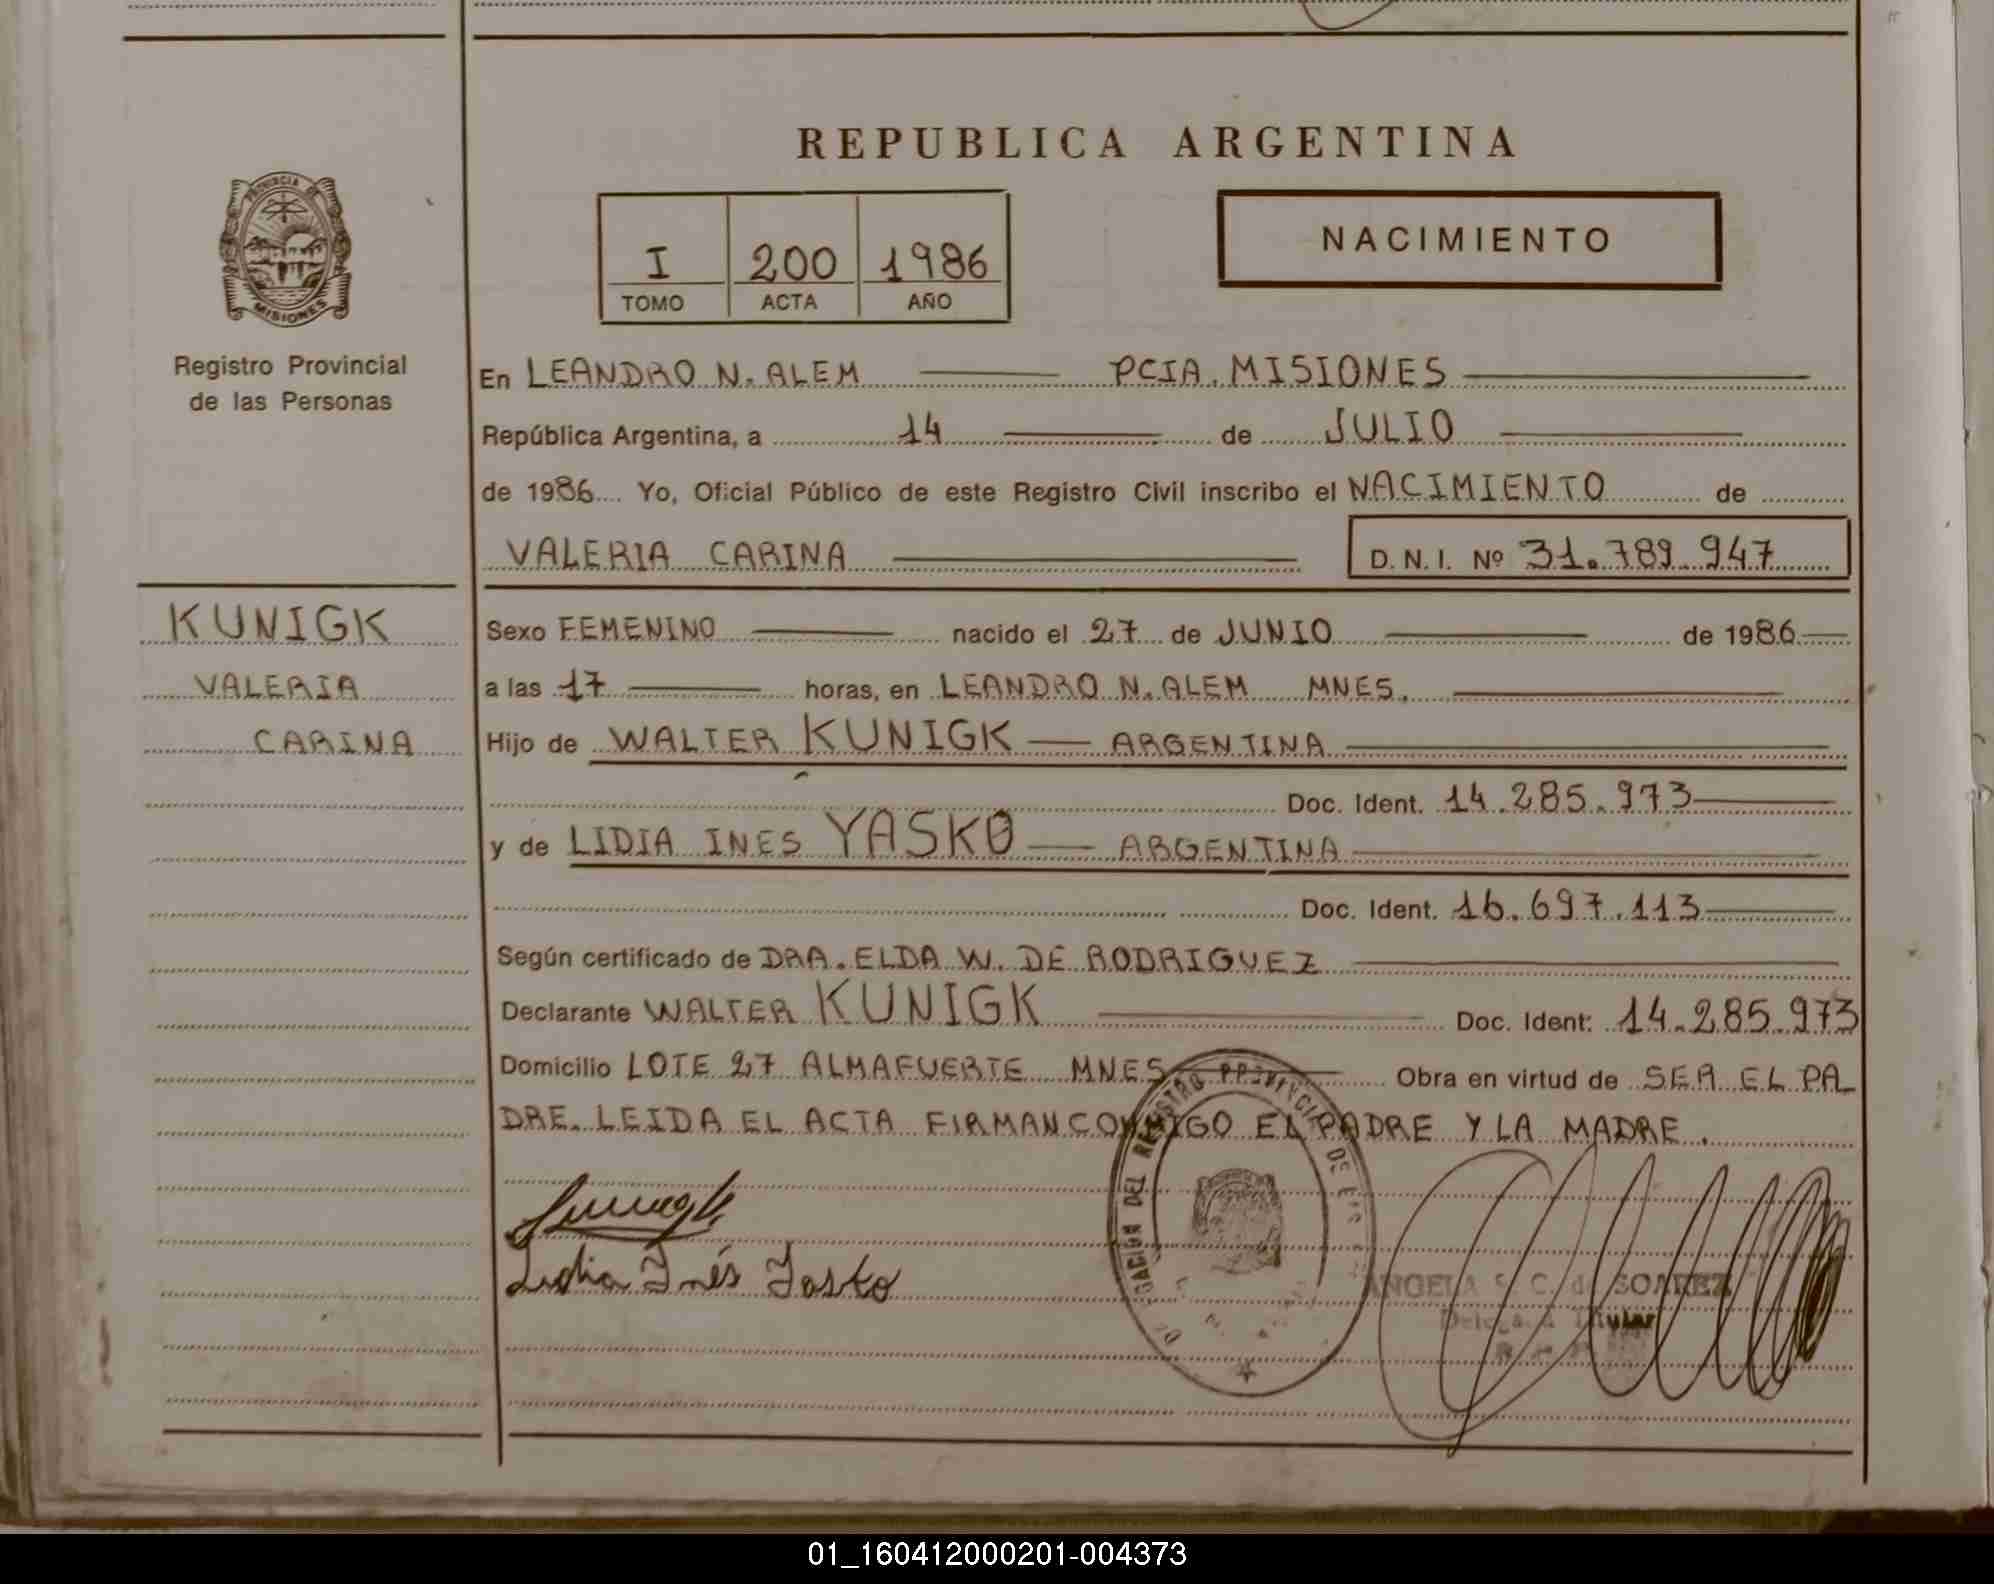 REPUBLICA ARGENTINA
PROVINCIA DE
MISIONES
I 200 1986
TOMO ACTA AÑO
NACIMIENTO
Registro Provincial
de las Personas
En LEANDRO N. ALEM PCIA. MISIONES
República Argentina, a 14 de JULIO
de 1986 Yo, Oficial Público de este Registro Civil inscribo el NACIMIENTO de
VALERIA CARINA D.N.I. Nº 31.789.947
KUNIGK
VALERIA
CARINA
Sexo FEMENINO nacido el 27 de JUNIO de 1986
a las 17 horas, en LEANDRO N. ALEM MNES.
Hijo de WALTER KUNIGK ARGENTINA
Doc. Ident. 14.285.973
y de LIDIA INES YASKO ARGENTINA
Doc. Ident. 16.697.113
Según certificado de DRA. ELDA W. DE RODRIGUEZ
Declarante WALTER KUNIGK Doc. Ident: 14.285.973
Domicilio LOTE 27 ALMAFUERTE MNES Obra en virtud de SER EL PA
DRE. LEIDA EL ACTA FIRMAN CONMIGO EL PADRE Y LA MADRE.
Lidia Inés Yasko
DEL REGISTRO PROVINCIAL DE
ANGELA S. C. de SOAREZ
Delegada Titular
01_160412000201-004373